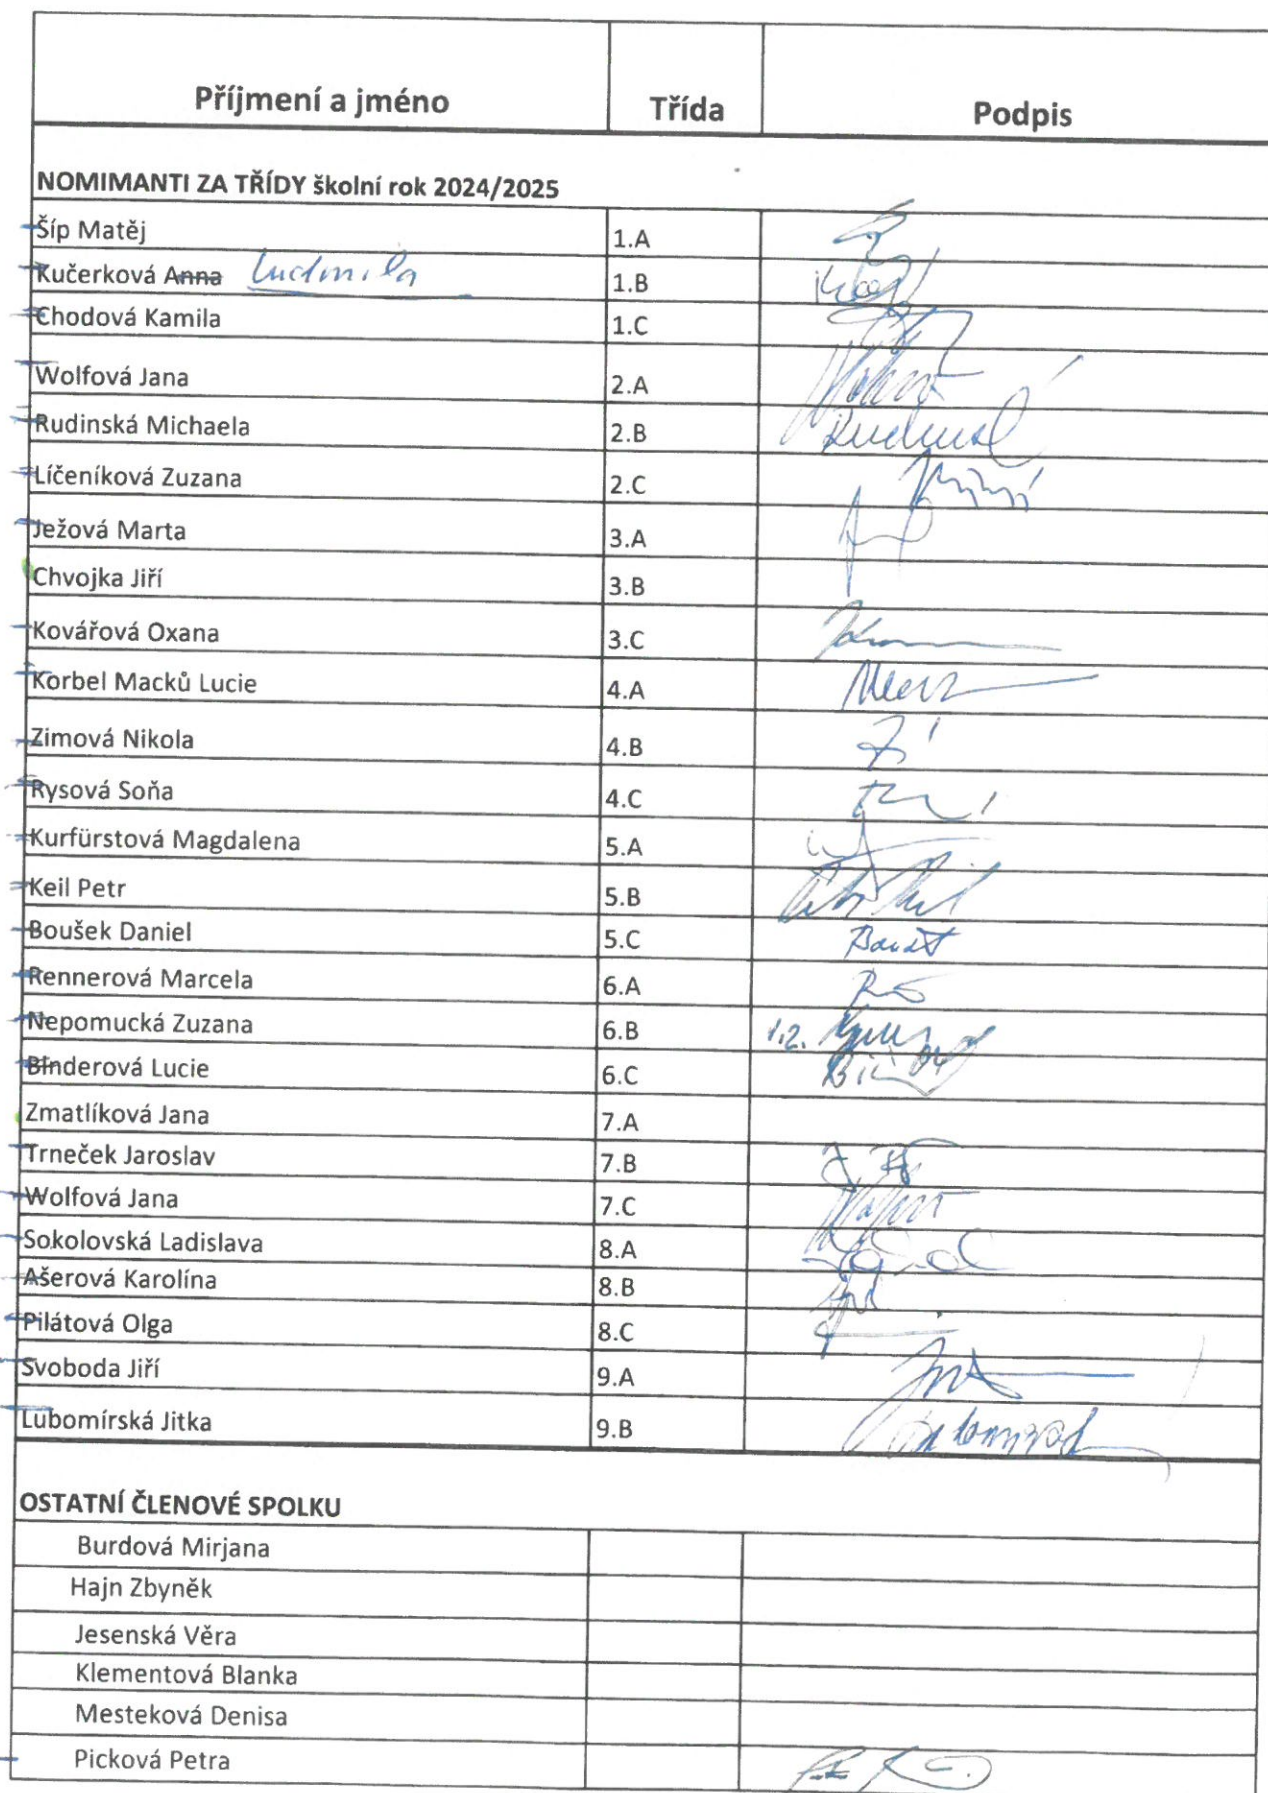 Příjmení a jméno Třída Podpis
NOMIMANTI ZA TŘÍDY školní rok 2024/2025
Šíp Matěj 1.A
Kučerková Anna Ludmila 1.B
Chodová Kamila 1.C
Wolfová Jana 2.A
Rudinská Michaela 2.B
Líčeníková Zuzana 2.C
Ježová Marta 3.A
Chvojka Jiří 3.B
Kovářová Oxana 3.C
Korbel Macků Lucie 4.A
Zimová Nikola 4.B
Rysová Soňa 4.C
Kurfürstová Magdalena 5.A
Keil Petr 5.B
Boušek Daniel 5.C
Rennerová Marcela 6.A
Nepomucká Zuzana 6.B
Binderová Lucie 6.C
Zmatlíková Jana 7.A
Trneček Jaroslav 7.B
Wolfová Jana 7.C
Sokolovská Ladislava 8.A
Ašerová Karolína 8.B
Pilátová Olga 8.C
Svoboda Jiří 9.A
Lubomírská Jitka 9.B
OSTATNÍ ČLENOVÉ SPOLKU
Burdová Mirjana
Hajn Zbyněk
Jesenská Věra
Klementová Blanka
Mesteková Denisa
Picková Petra